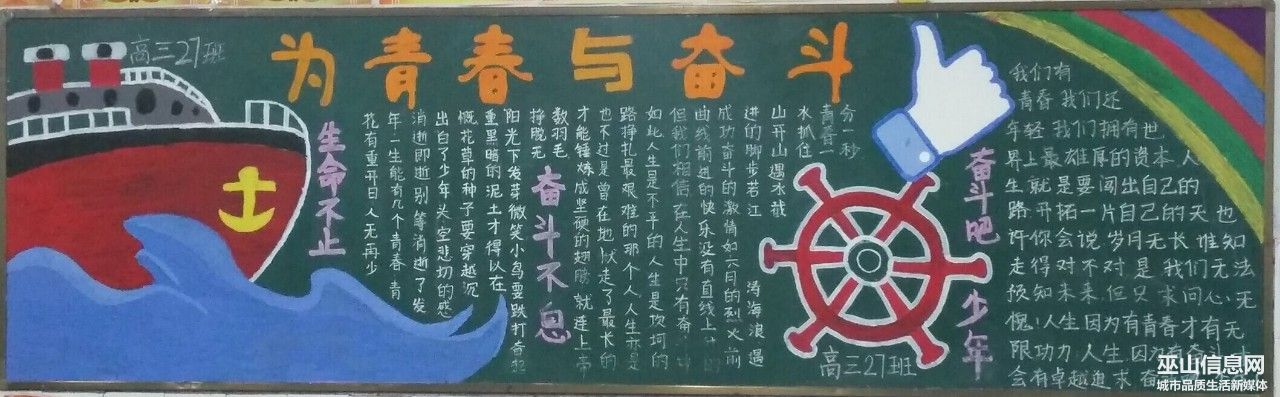 高三27班
为青春与奋斗
生命不止
奋斗不息
奋斗吧 少年
分一秒
青春一
水抓住
山开山遇水截
进的脚步若江
涛海浪遇
成功奋斗的激情如六月的烈火前
曲线前进的快乐没有直线上
但我们相信在人生中只有奋
如此人生是不平的人生是坎坷的
路挣扎最艰难的那个人人生亦是
也不过是曾在地狱走了最长的
才能锤炼成坚硬的翅膀就连上帝
数羽毛
挣脱无
阳光下发芽微笑小鸟要跌打
重黑暗的泥土才得以在
慨花草的种子要穿越沉
出白了少年头空悲切的感
消逝即逝别等消逝了发
年一生能有几个青春青
花有重开日人无再少
高三27班
我们有
青春 我们还
年轻 我们拥有世
界上最雄厚的资本 人
生就是要闯出自己的
路开拓一片自己的天 也
许你会说 岁月无长 谁知
走得对不对 是 我们无法
预知未来 但只求问心无
愧 人生因为有青春才有无
限功力 人生因为有奋斗
会有卓越追求
巫山信息网
城市品质生活新媒体